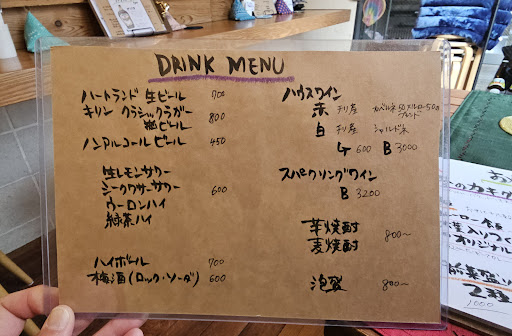 DRINK MENU
ハートランド 生ビール 700
キリン クラシックラガー
瓶ビール 800
ノンアルコールビール 450
生レモンサワー
シークワサーサワー
ウーロンハイ 600
緑茶ハイ
ハイボール 700
梅酒(ロック・ソーダ) 600
ハウスワイン
赤 チリ産 カベルネ50メルロー50%
ブレンド
白 チリ産 シャルドネ
G 600 B 3000
スパークリングワイン
B 3200
芋焼酎
麦焼酎 800〜
泡盛 800〜
のカキ
オリジナル
1000